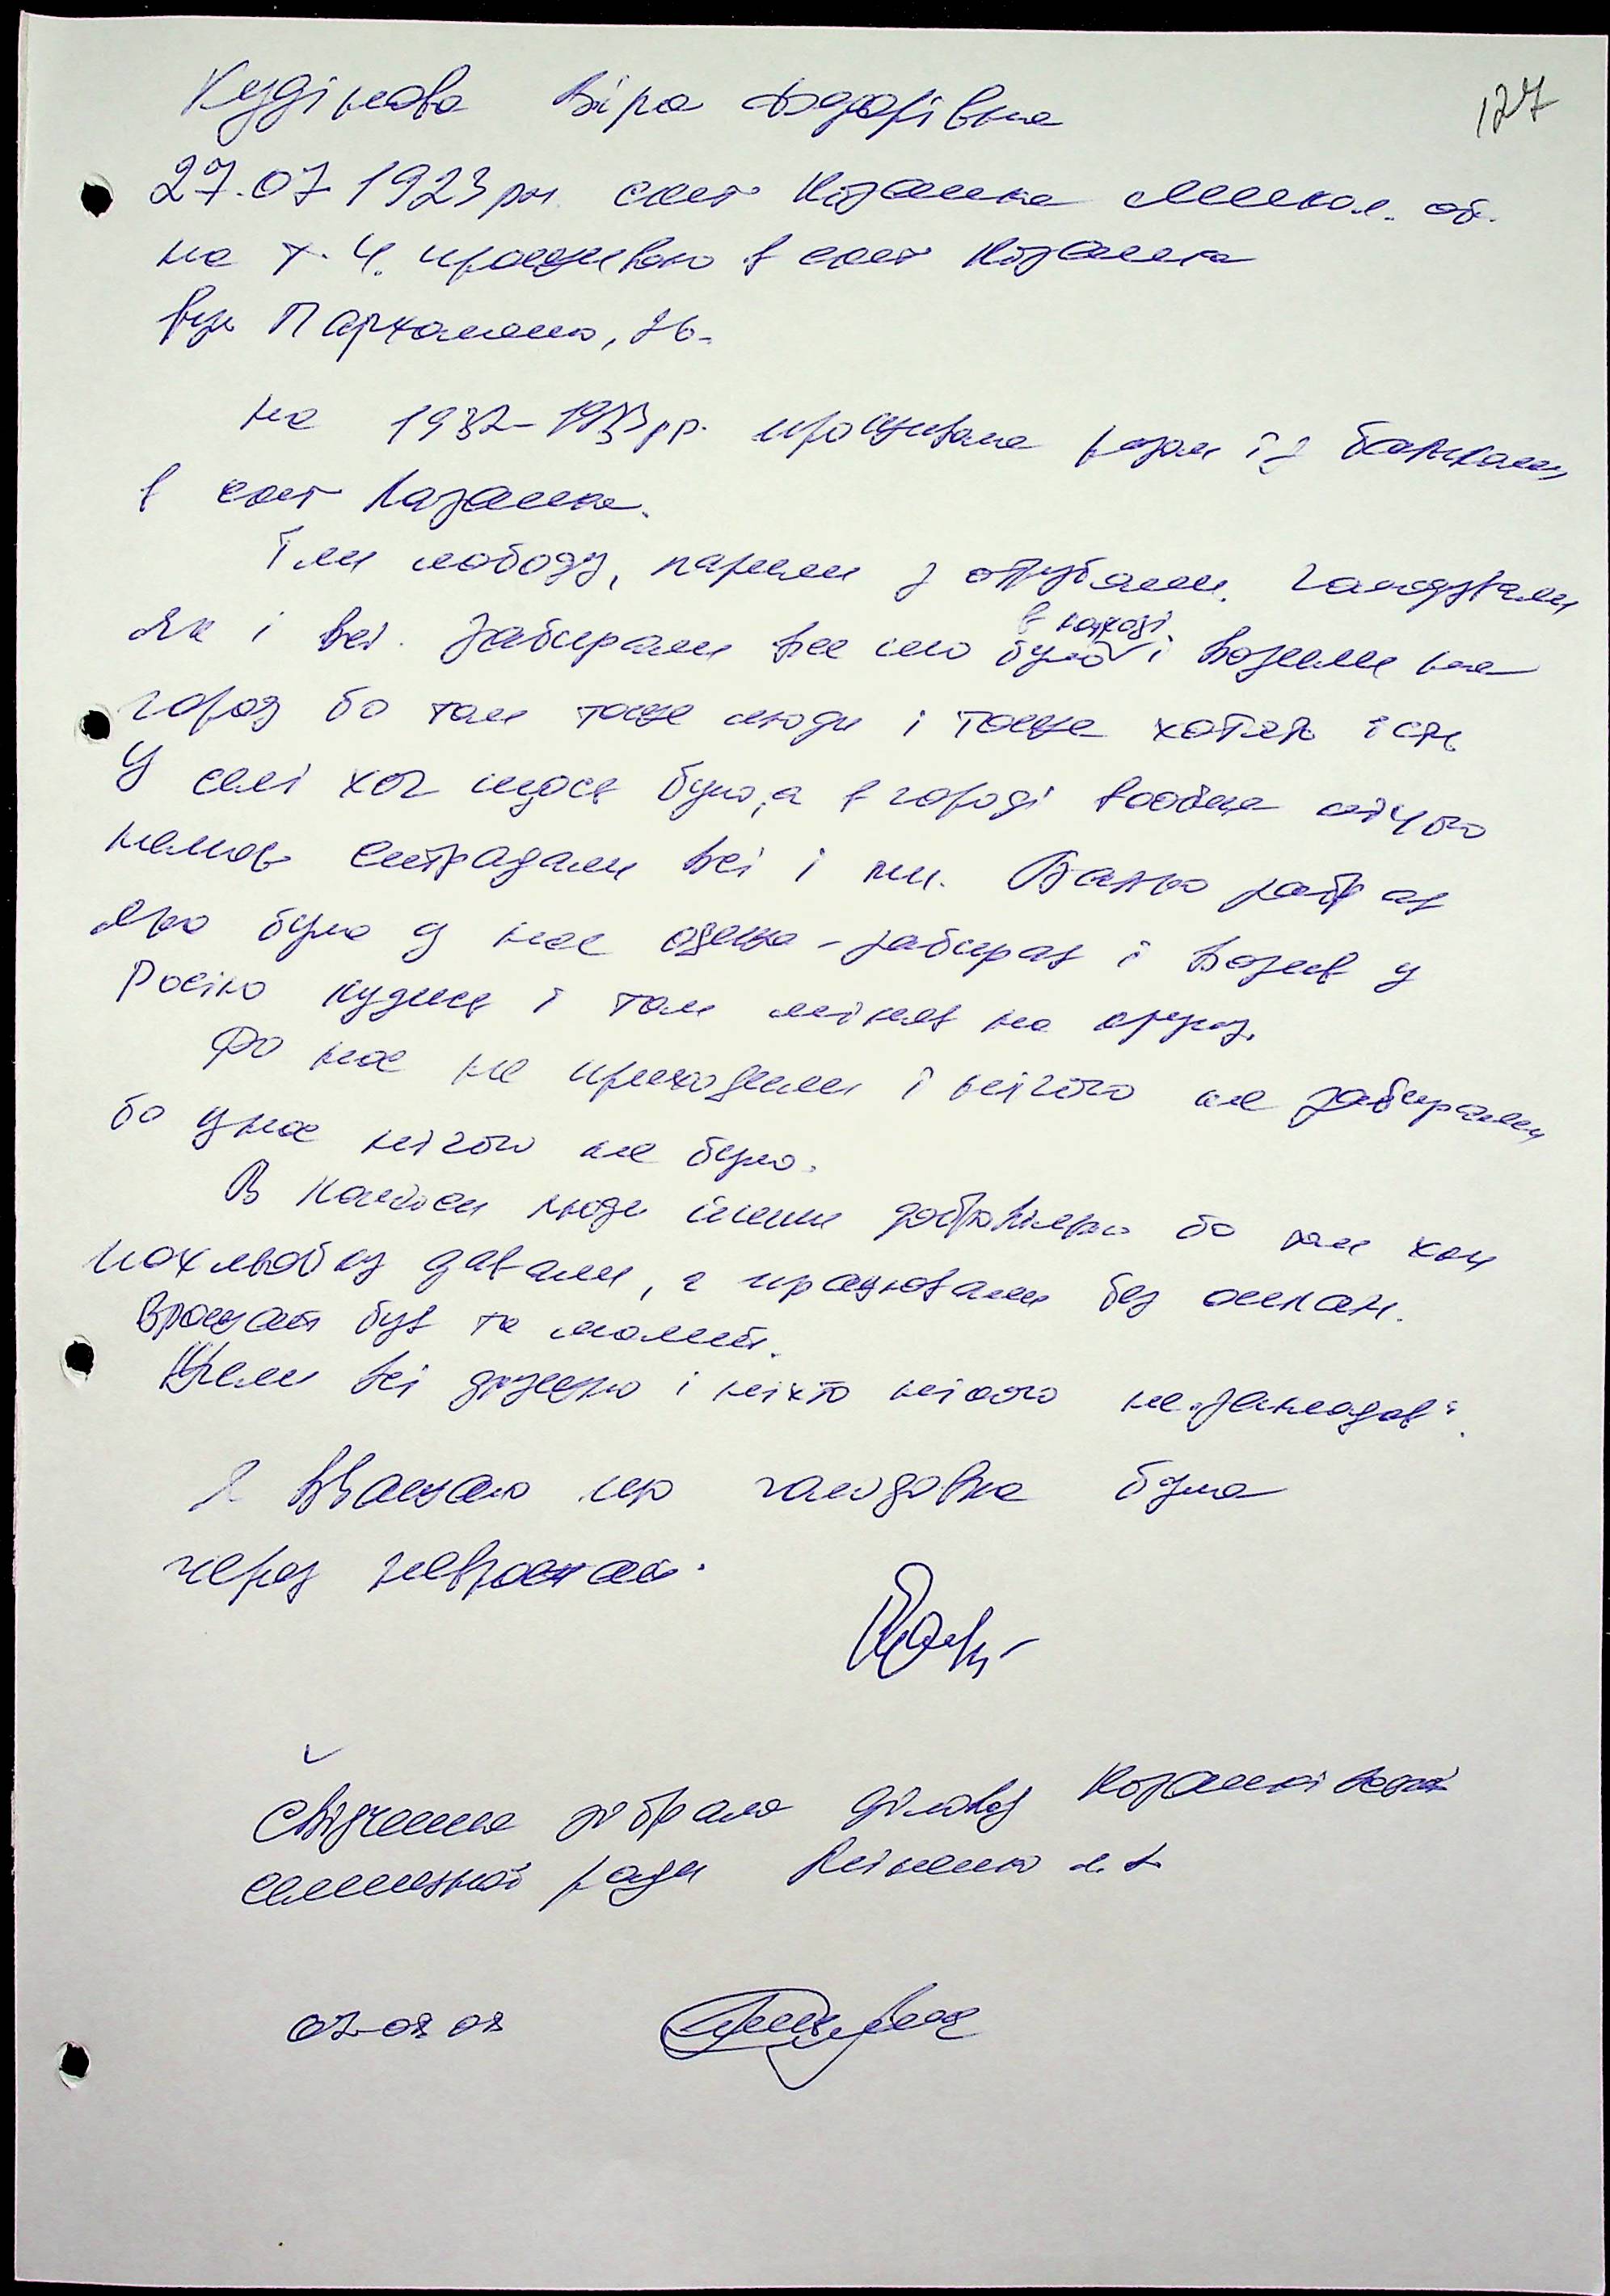 127
Кудінова Віра Федорівна
27.07.1923 рн. смт Казанка Микол. об.
на т.ч. проживаю в смт Казанка
вул Пархоменко, 26.
на 1932-1933 рр. проживала разом із батьками
в смт Казанка.
Їли лободу, парили з отрубями. Голодували
як і всі. Забирали все що було в колгозі і возили на
город бо там тоже люди і тоже хотять їсти
У селі хоч щось було, а в городі вообще нічого
не страдали всі і ми. Батько забрав
яка була у нас одежа - забирав і возив у
Росію кудись і там міняв на
До нас не приходили і нічого не забирали
бо у нас нічого не було.
В колгосп люди йшли добровільно бо там хоч
похльобку давали, а працювали без оплати.
Врожай був та малий.
Жили всі дружно і ніхто нікого не "закладав".
Я вважаю що голодовка була
через неврожай.
Свідчення зібрала діловод Казанківської
селищної ради
07.08.08